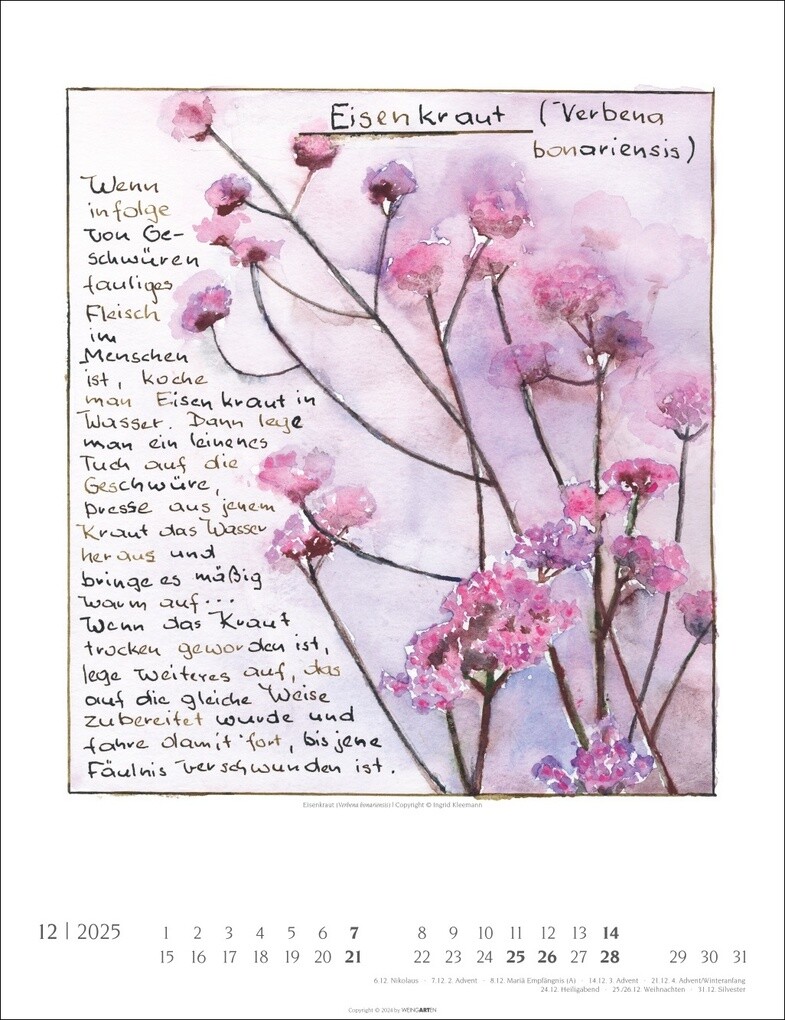 Eisenkraut (Verbena
bonariensis)
Wenn
infolge
von Ge-
schwüren
fauliges
Fleisch
im
Menschen
ist, koche
man Eisenkraut in
Wasser. Dann lege
man ein leinenes
Tuch auf die
Geschwüre,
presse aus jenem
Kraut das Wasser
heraus und
bringe es mäßig
warm auf...
Wenn das Kraut
trocken geworden ist,
lege weiteres auf, das
auf die gleiche Weise
zubereitet wurde und
fahre damit fort, bis jene
Fäulnis verschwunden ist.
Eisenkraut (Verbena bonariensis) | Copyright © Ingrid Kleemann
12 | 2025 1 2 3 4 5 6 7 8 9 10 11 12 13 14
15 16 17 18 19 20 21 22 23 24 25 26 27 28 29 30 31
6.12. Nikolaus · 7.12. 2. Advent · 8.12. Mariä Empfängnis (A) · 14.12. 3. Advent · 21.12. 4. Advent/Winteranfang
24.12. Heiligabend · 25./26.12. Weihnachten · 31.12. Silvester
Copyright © 2024 by WEINGARTEN